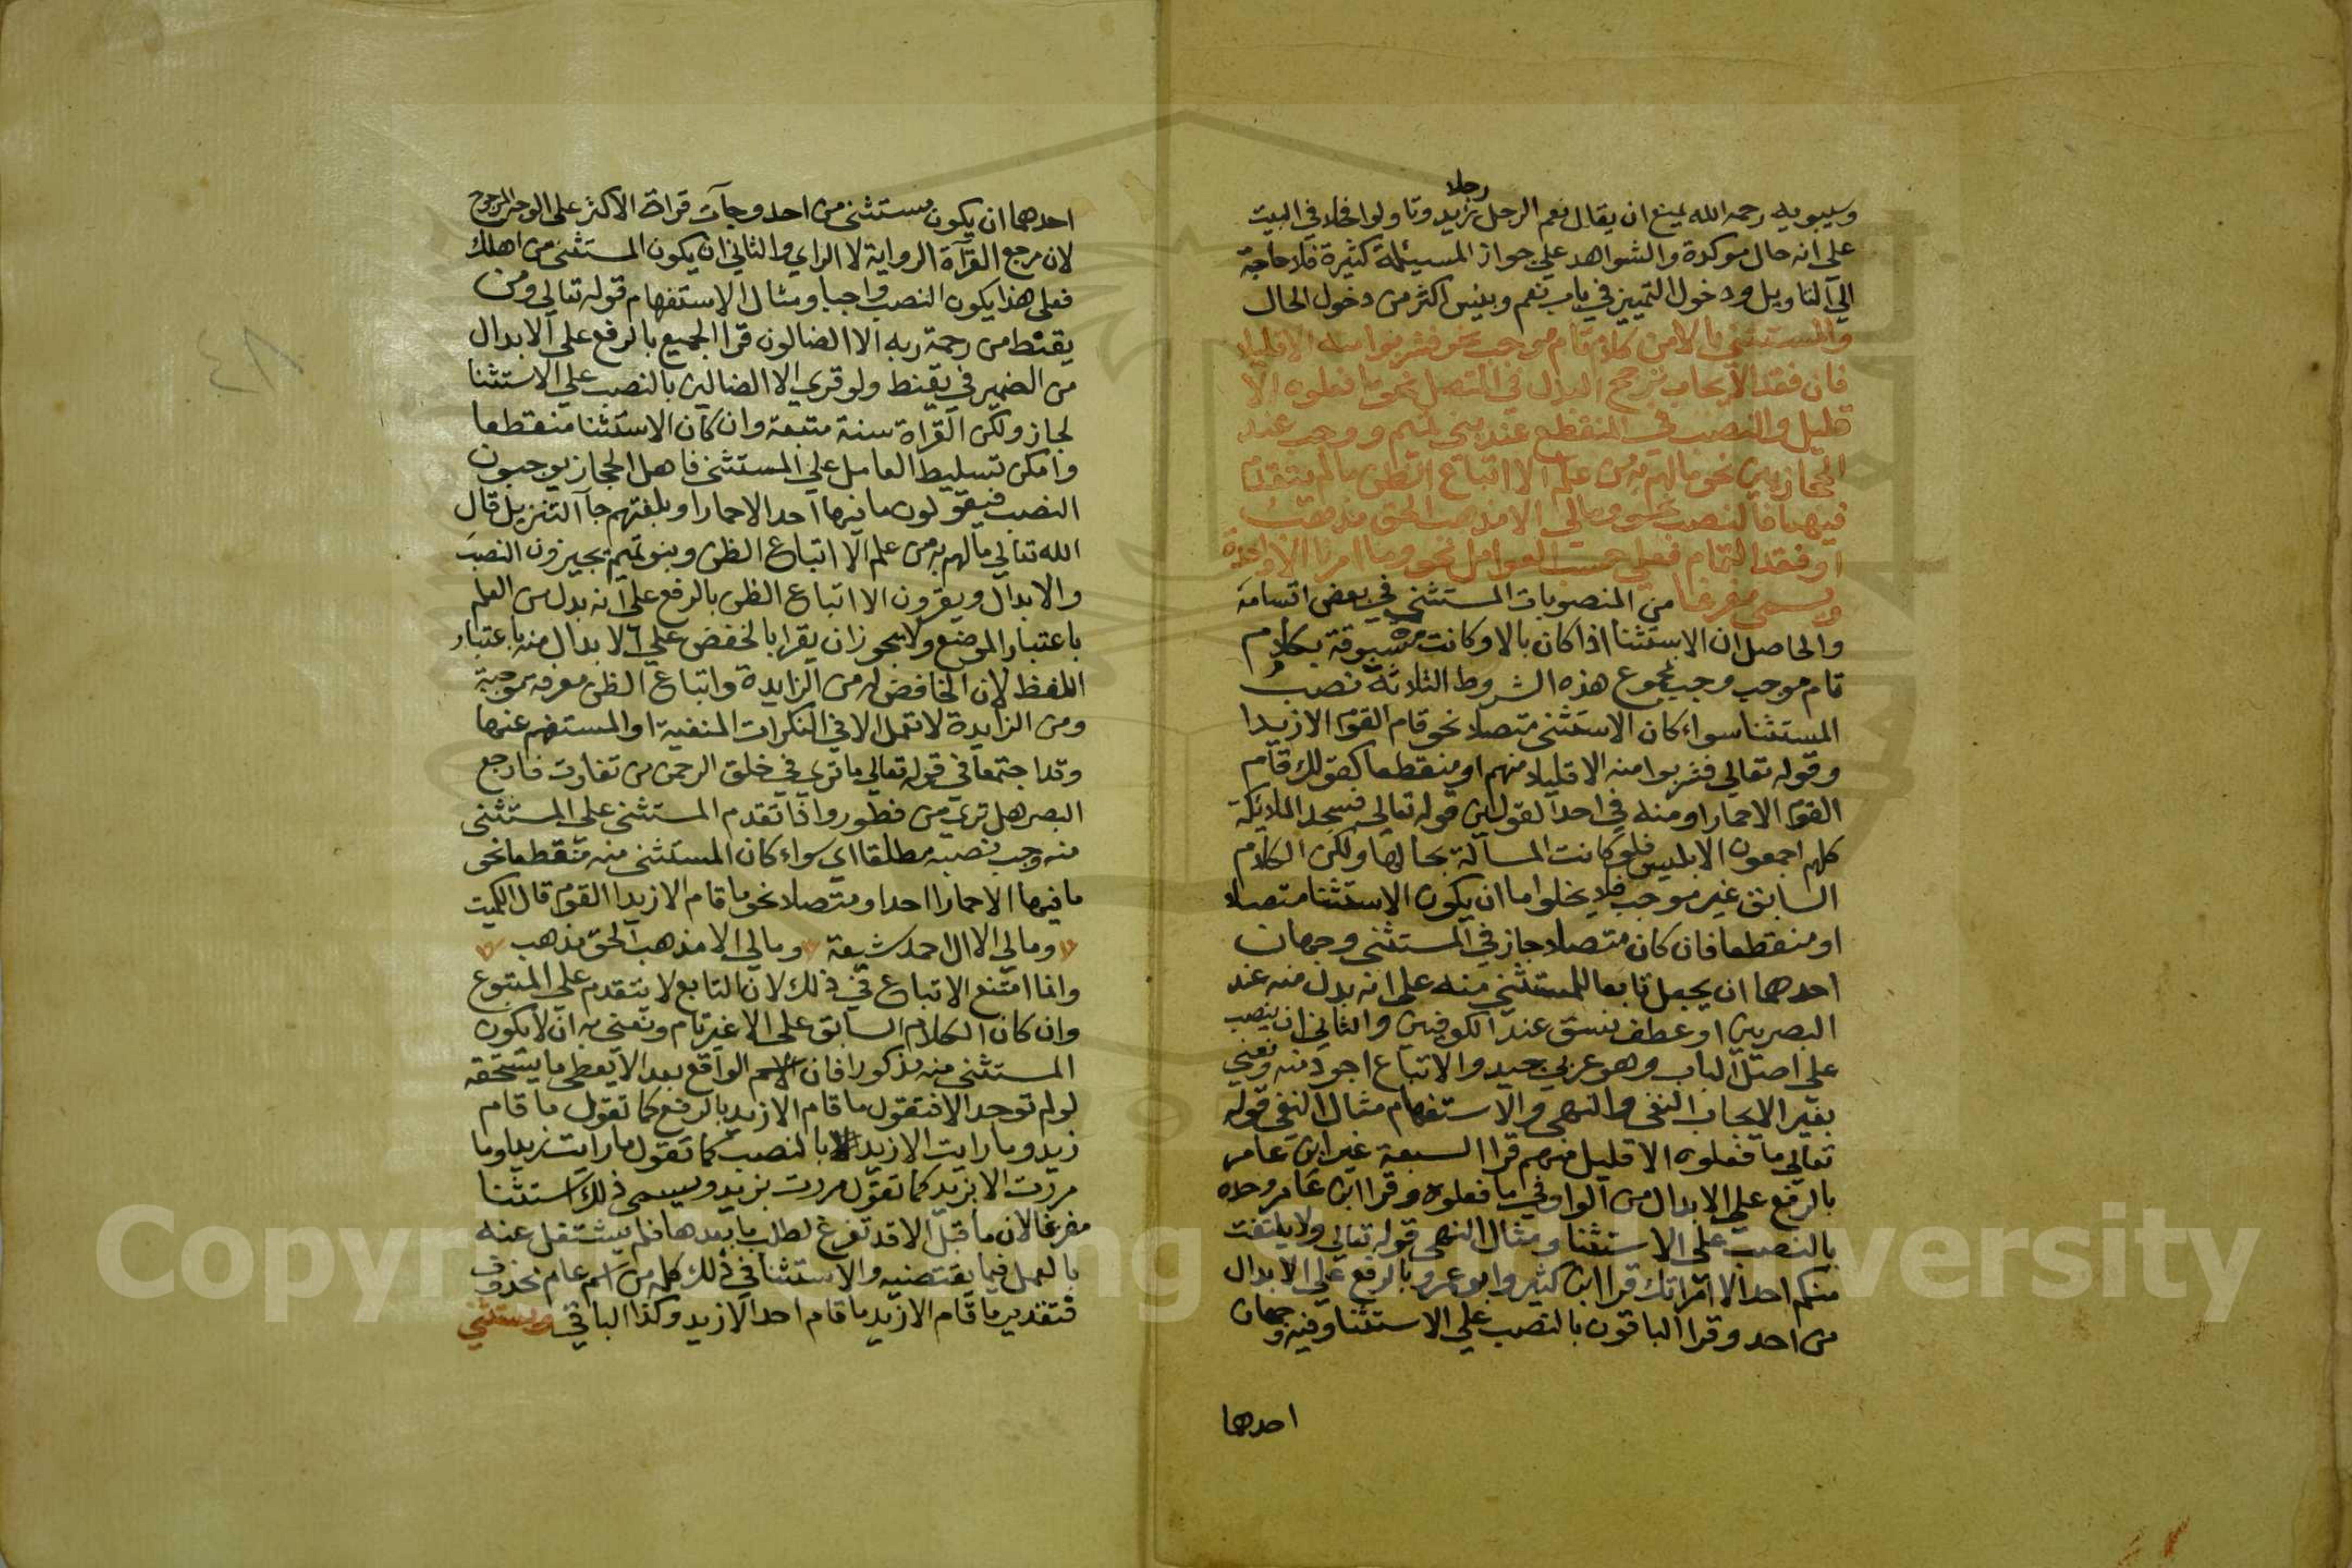 رجلا
وسيبويه رحمه الله يمنع ان يقال نعم الرجل زيد وتاولوا فحلا في البيت
علي انه حال موكدة والشواهد علي جواز المسيئلة كثيرة فلا حاجة
الي التاويل ودخول التمييز في باب نعم وبئس اكثر من دخول الحال
والمستثني بالا من كلام تام موجب نحو فشربوا منه الا قليلا
فان فقد الايجاب ترجح البدل في المتصل نحو ما فعلوه الا
قليل والنصب في المنقطع عند بني تميم ووجب عند
الحجازيين نحو مالهم به من علم الا اتباع الظن مالم يتقدم
فيهما فالنصب نحو ومالي الا مذهب الحق مذهب
او فقد التمام فعلي حسب العوامل نحو وما امرنا الا واحدة
ويسمي مفرغا من المنصوبات المستثني في بعض اقسامه
والحاصل ان الاستثنا اذا كان بالا وكانت مسبوقة بكلام
تام موجب وجب بمجموع هذه الشروط الثلاثة نصب
المستثنا سواء كان الاستثنى متصلا نحو قام القوم الا زيدا
وقوله تعالي فشربوا منه الا قليلا منهم او منقطعا كقولك قام
القوم الا حمارا ومنه في احد القولين قوله تعالى فسجد الملائكة
كلهم اجمعون الا ابليس فلو كانت المسالة بحالها ولكن الكلام
السابق غير موجب فلا يخلوا ما ان يكون الاستثنا متصلا
او منقطعا فان كان متصلا جاز في المستثنى وجهان
احدهما ان يجعل تابعا للمستثني منه على انه بدل منه عند
البصريين او عطف نسق عند الكوفيين والثاني ان ينصب
على اصل الباب وهو عربي جيد والاتباع اجود منه ونعني
بغير الايجاب النفى والنهى والاستفهام مثال النفي قوله
تعالي ما فعلوه الا قليل منهم قرا السبعة غير ابن عامر
بالرفع علي الابدال من الواو في ما فعلوه وقرا ابن عامر وحده
بالنصب على الاستثنا ومثال النهى قوله تعالي ولا يلتفت
منكم احد الا امراتك قرا ابن كثير وابو عمرو بالرفع علي الابدال
من احد وقرا الباقون بالنصب علي الاستثنا وفيه وجهان
احدهما
احدهما ان يكون مستثنى من احد وجآت قراة الاكثر على الوجه المرجوح
لان مرجع القرآة الرواية لا الراي والثاني ان يكون المستثنى من اهلك
فعلى هذا يكون النصب واجبا ومثال الاستفهام قوله تعالي ومن
يقنط من رحمة ربه الا الضالون قرا الجميع بالرفع على الابدال
من الضمير في يقنط ولو قري الا الضالين بالنصب علي الاستثنا
لجاز ولكن القراة سنة متبعة وان كان الاستثنا منقطعا
وامكن تسليط العامل علي المستثنى فاهل الحجاز يوجبون
النصب فيقولون ما فيها احد الا حمارا وبلغتهم جآ التنزيل قال
الله تعالي مالهم به من علم الا اتباع الظن وبنو تميم يجيزون النصب
والابدال ويقرون الا اتباع الظن بالرفع على انه بدل من العلم
باعتبار الموضع ولا يجوز ان يقرا بالخفض علي الابدال منه باعتبار
اللفظ لان الخافض له من الزايدة واتباع الظن معرفة موجبة
ومن الزايدة لا تعمل الا في النكرات المنفية او المستفهم عنها
وقد اجتمعا في قوله تعالي ما تري في خلق الرحمن من تفاوت فارجع
البصر هل تري من فطور واذا تقدم المستثنى على المستثنى
منه وجب نصبه مطلقا اي سواء كان المستثنى منه منقطعا نحو
ما فيها الا حمارا احد او متصلا نحو ما قام الا زيدا القوم قال الكميت
ومالي الا ال احمد شيعة ومالي الا مذهب الحق مذهب
وانما امتنع الاتباع في ذلك لان التابع لا يتقدم على المتبوع
وان كان الكلام السابق على الا غير تام ونعنى به ان لا يكون
المستثنى منه مذكورا فان الاسم الواقع بعد الا يعطى ما يستحقه
لو لم توجد الا فتقول ما قام الا زيد بالرفع كما تقول ما قام
زيد وما رايت الا زيدا بالنصب كما تقول ما رايت زيدا وما
مررت الا بزيد كما تقول مررت بزيد ويسمى ذلك استثنا
مفرغا لان ما قبل الا قد تفرغ لطلب ما بعدها فلم يشتغل عنه
بالعمل فيما يقتضيه والاستثنا في ذلك كله من اسم عام محذوف
فتقدير ما قام الا زيد ما قام احد الا زيد وكذا الباقي ويستثني
٤٨
Copyright © King Saud University